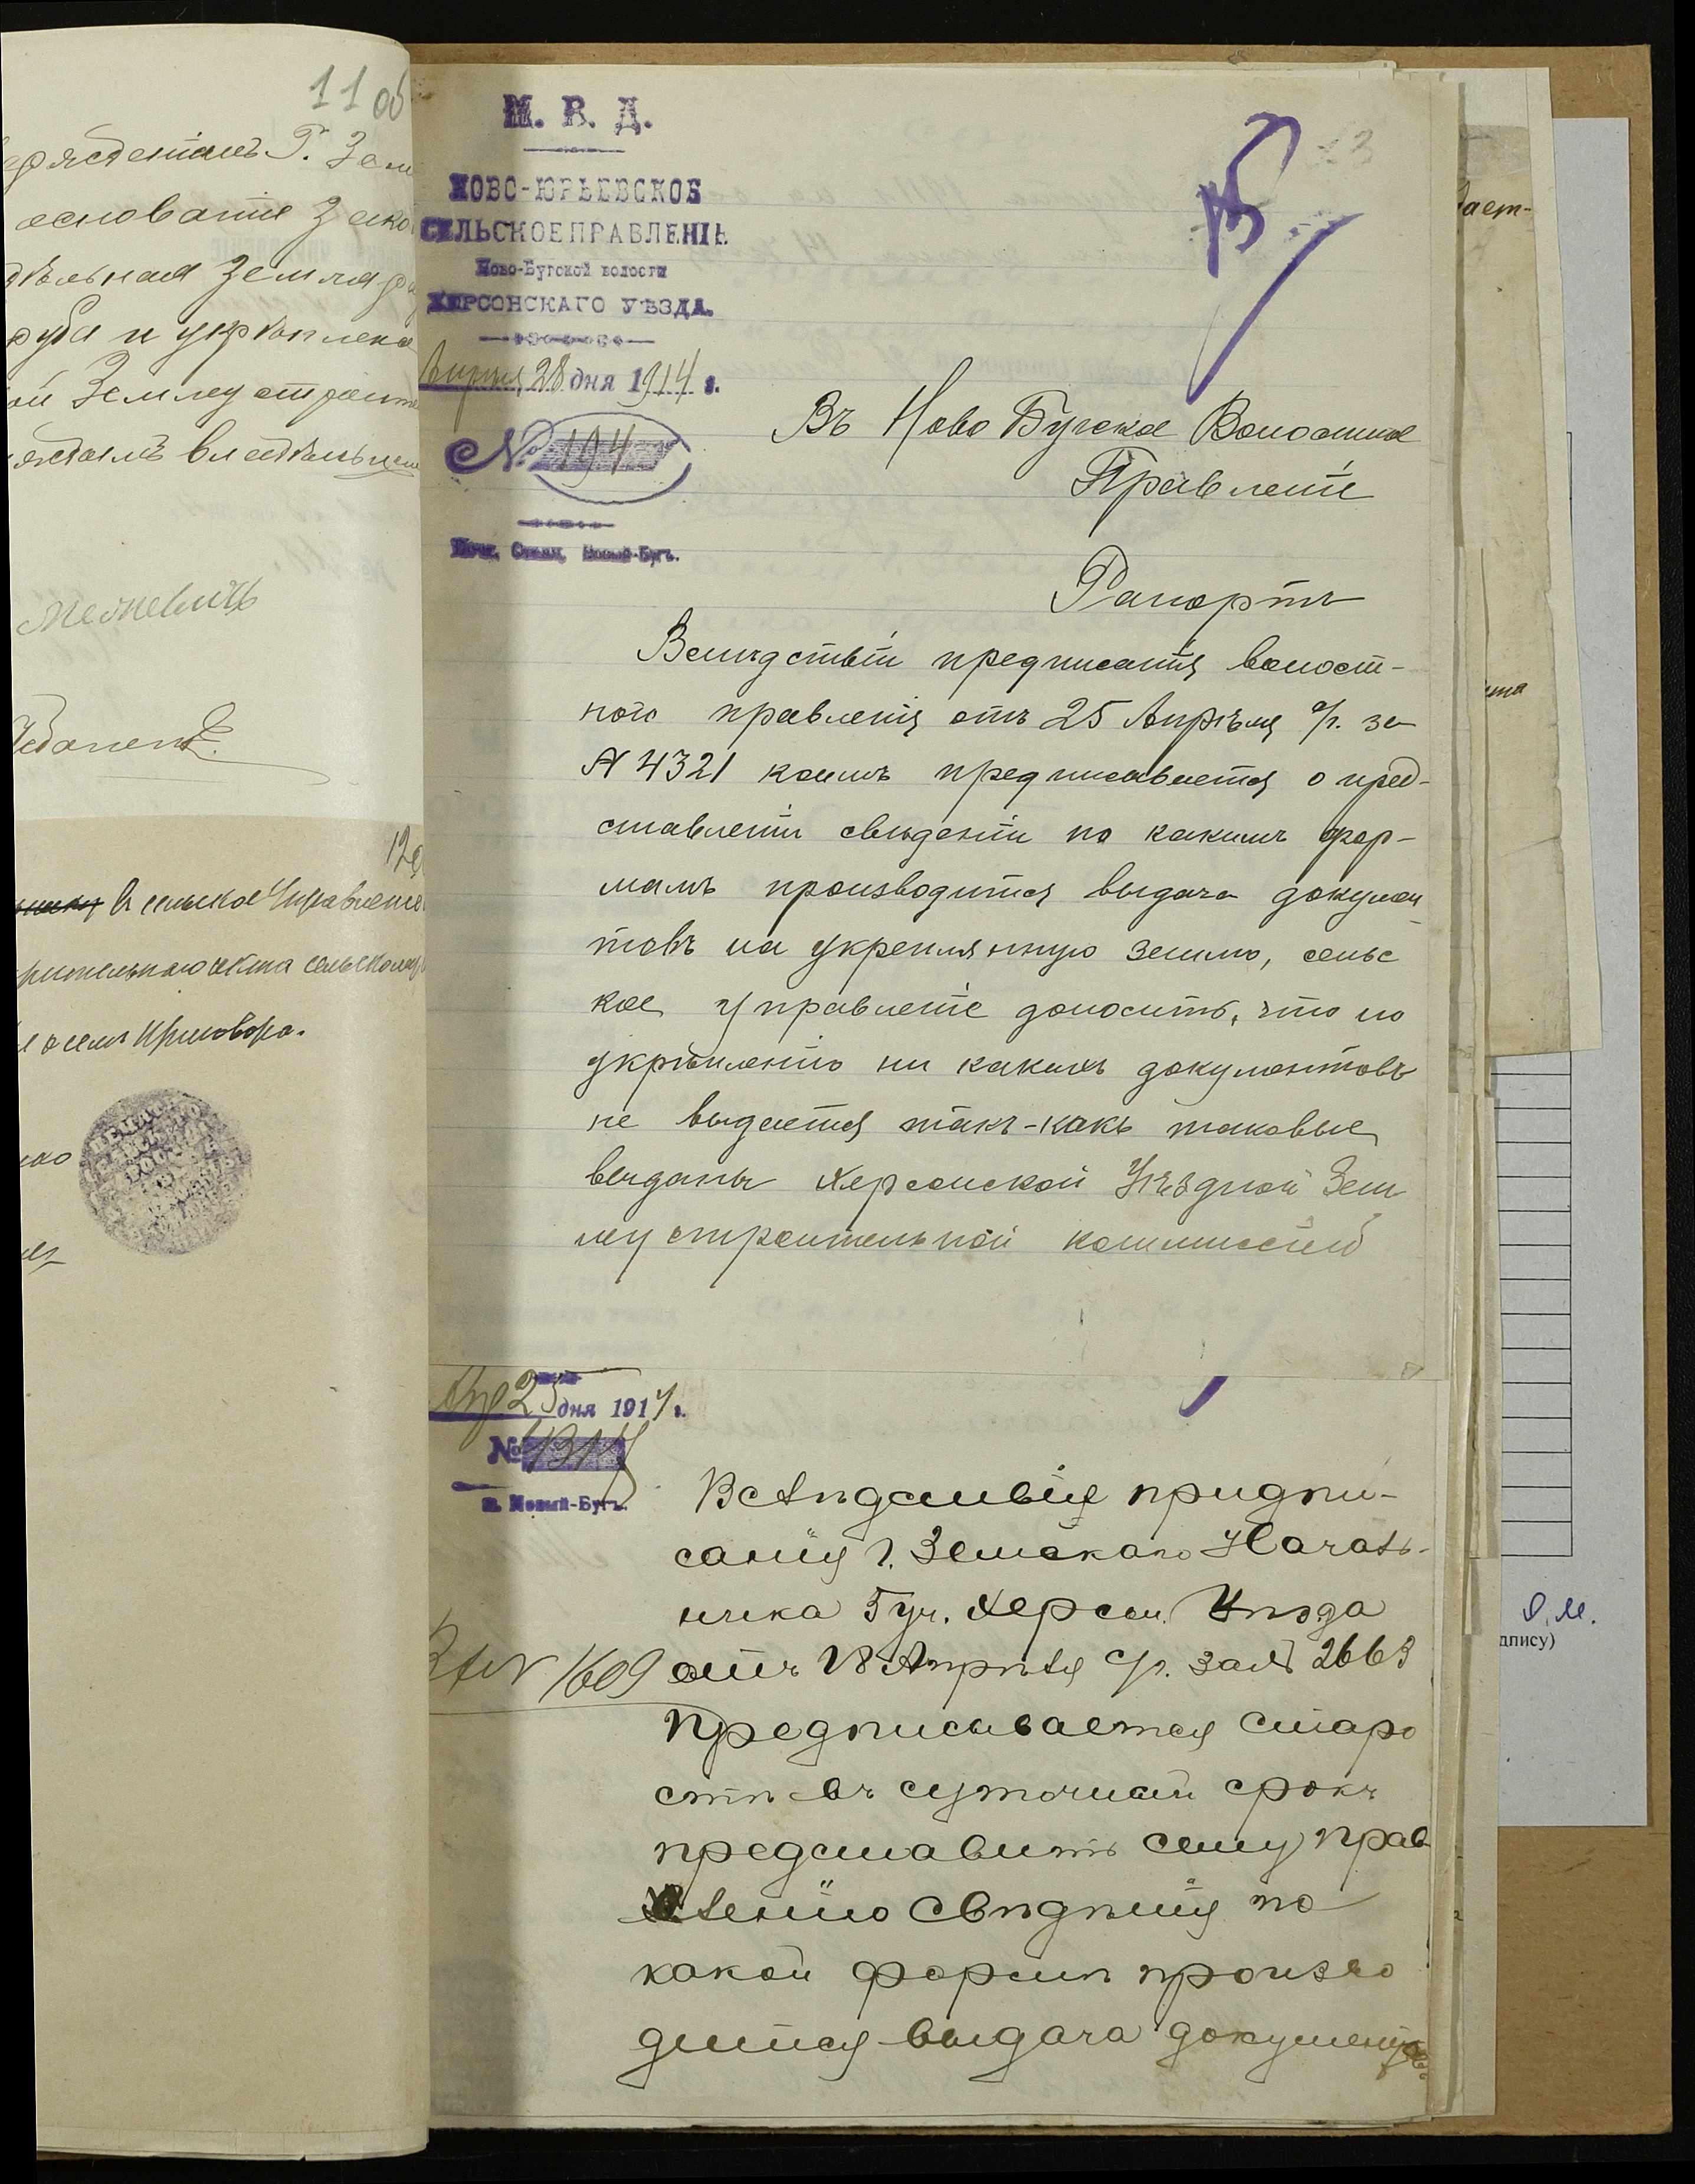 11 об
Г. Зем
основание Зако
дѣльная земля
руба и укрѣплена
ой Землеустроите
владѣльцем
12 об
в сельское Управление
рительнаго акта сельскому
Приговора.
М. В. Д.
НОВО-ЮРЬЕВСКОЕ
СЕЛЬСКОЕ ПРАВЛЕНІЕ
Ново-Бугской волости
ХЕРСОНСКАГО УѢЗДА.
Апреля 28 дня 1914 г.
№ 194
Почт. Станц. Новый-Бугъ.
15
Въ Ново Бугское Волостное
Правленіе
Рапортъ
Вслѣдствіи предписанія волост-
ного правленія отъ 25 Апрѣля с/г. за
N 4321 коимъ предписавается о пред-
ставленіи свѣдѣніи по какимъ фор-
мамъ производится выдача докумен
товъ на укреплянную землю, сельс
кое управленіе доноситъ, что по
укрѣпленію ни какихъ документовъ
не выдается такъ-какъ таковые
выданы Херсонской Уѣздной Зем
леустроительной коммиссіей
Апр 25 дня 1914 г.
№ 4317
п. Новый-Бугъ.
Вслѣдствія придпи-
санія г. Земскаго Началь-
ника 5 уч. Херсон. Уѣзда
отъ 18 Апрѣля с/г. за № 2663
предписывается старо
стѣ въ суточный срокъ
представить сему прав
ленію свѣдѣнія по
какой формѣ произво
дится выдача документовъ
1609
дает-
дпису)